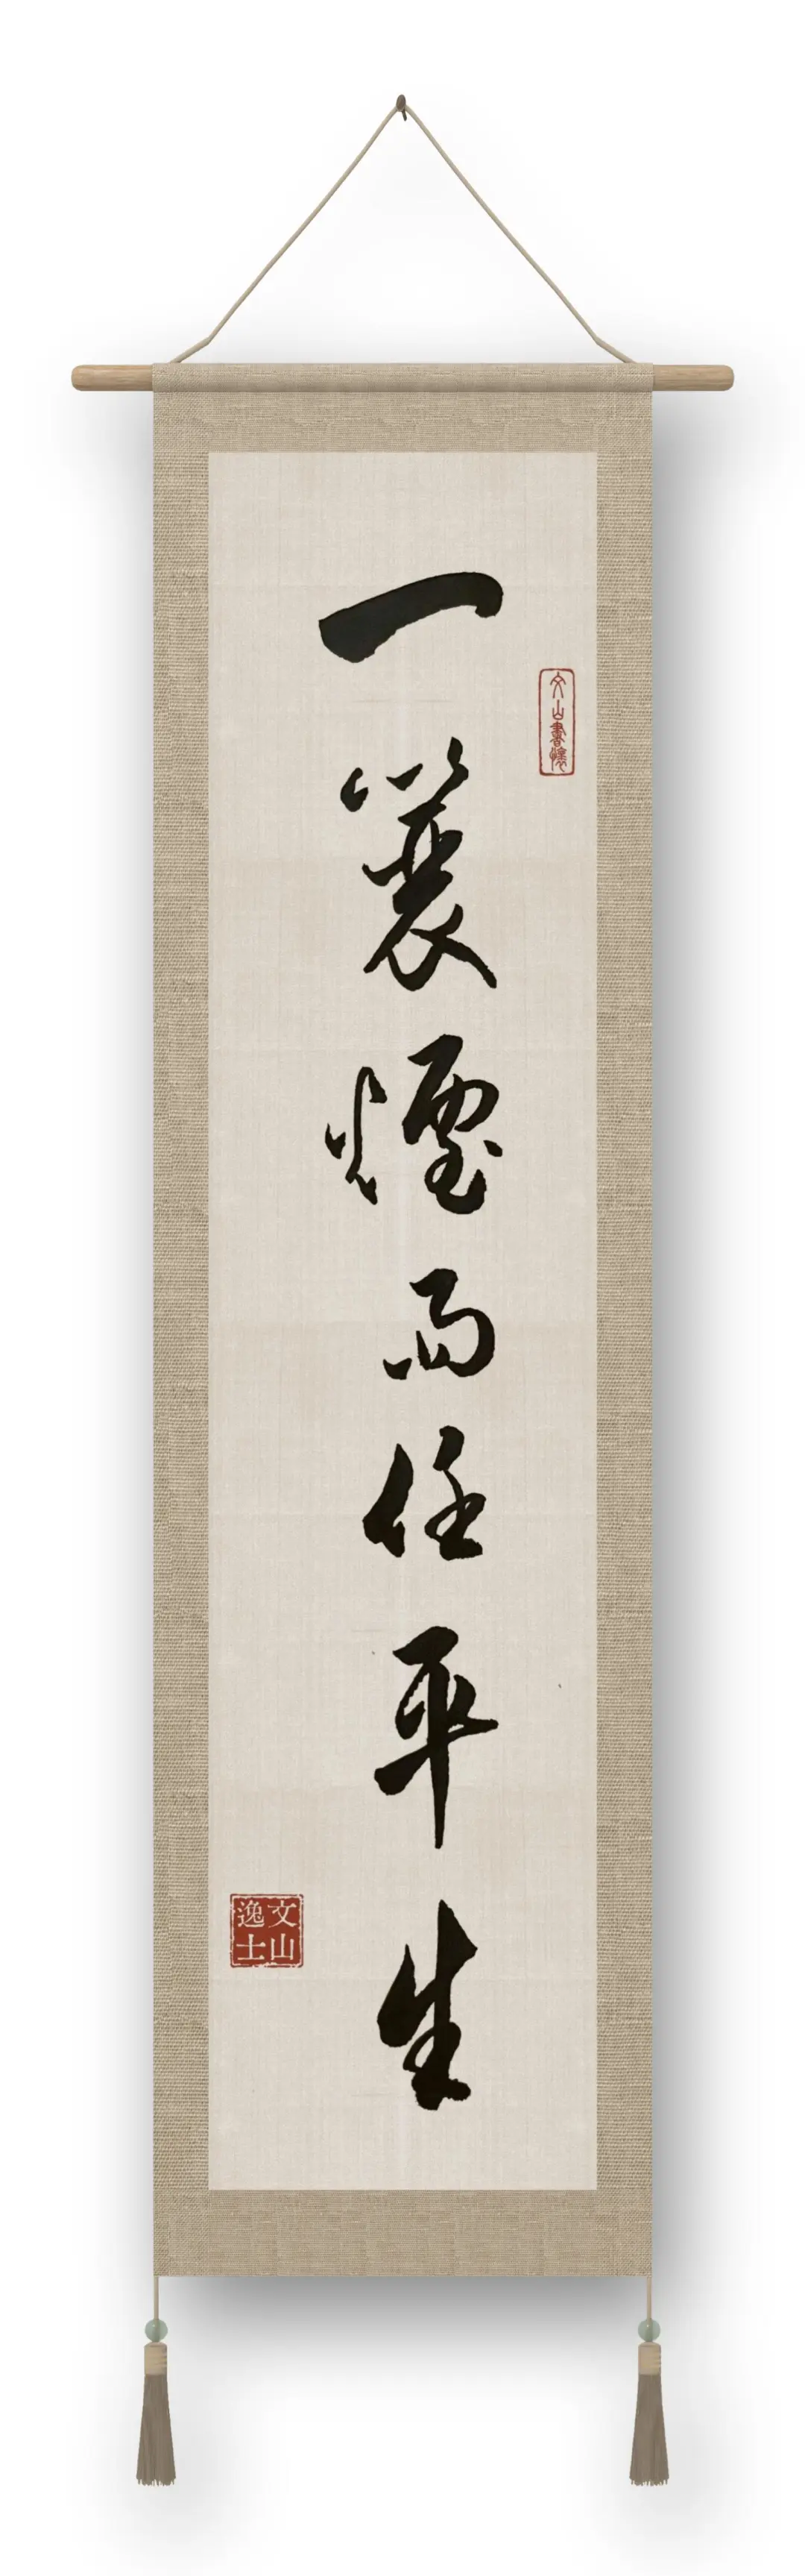 一蓑煙雨任平生
文山書懷
文山逸士